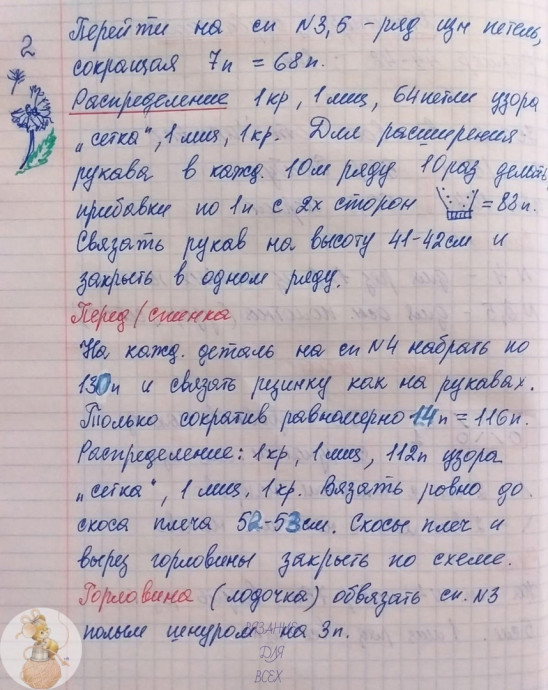 2
Перейти на сп N3,5 - ряд изн петель,
сокращая 7п = 68п.
Распределение 1кр, 1лиц, 64петли узора
„сетка“, 1лиц, 1кр. Для расширения
рукава в кажд. 10м ряду 10раз делать
прибавки по 1п с 2х сторон = 88п.
Связать рукав на высоту 41-42см и
закрыть в одном ряду.
Перед/спинка
На кажд. деталь на сп N4 набрать по
130п и связать резинку как на рукавах.
Только сократив равномерно 14п = 116п.
Распределение: 1кр, 1лиц, 112п узора
„сетка“, 1лиц, 1кр. Вязать ровно до
скоса плеча 52-53см. Скосы плеч и
вырез горловины закрыть по схеме.
Горловина (лодочка) обвязать сп. N3
полым шнуром на 3п.
ВЯЗАНИЕ
ДЛЯ
ВСЕХ